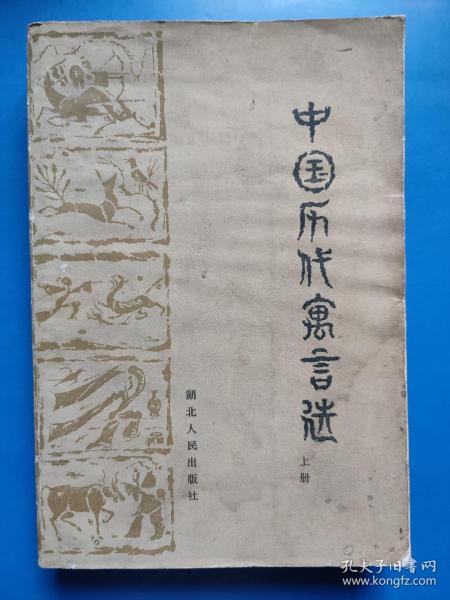 中国历代寓言选
上册
湖北人民出版社
孔夫子旧书网
www.kongfz.com